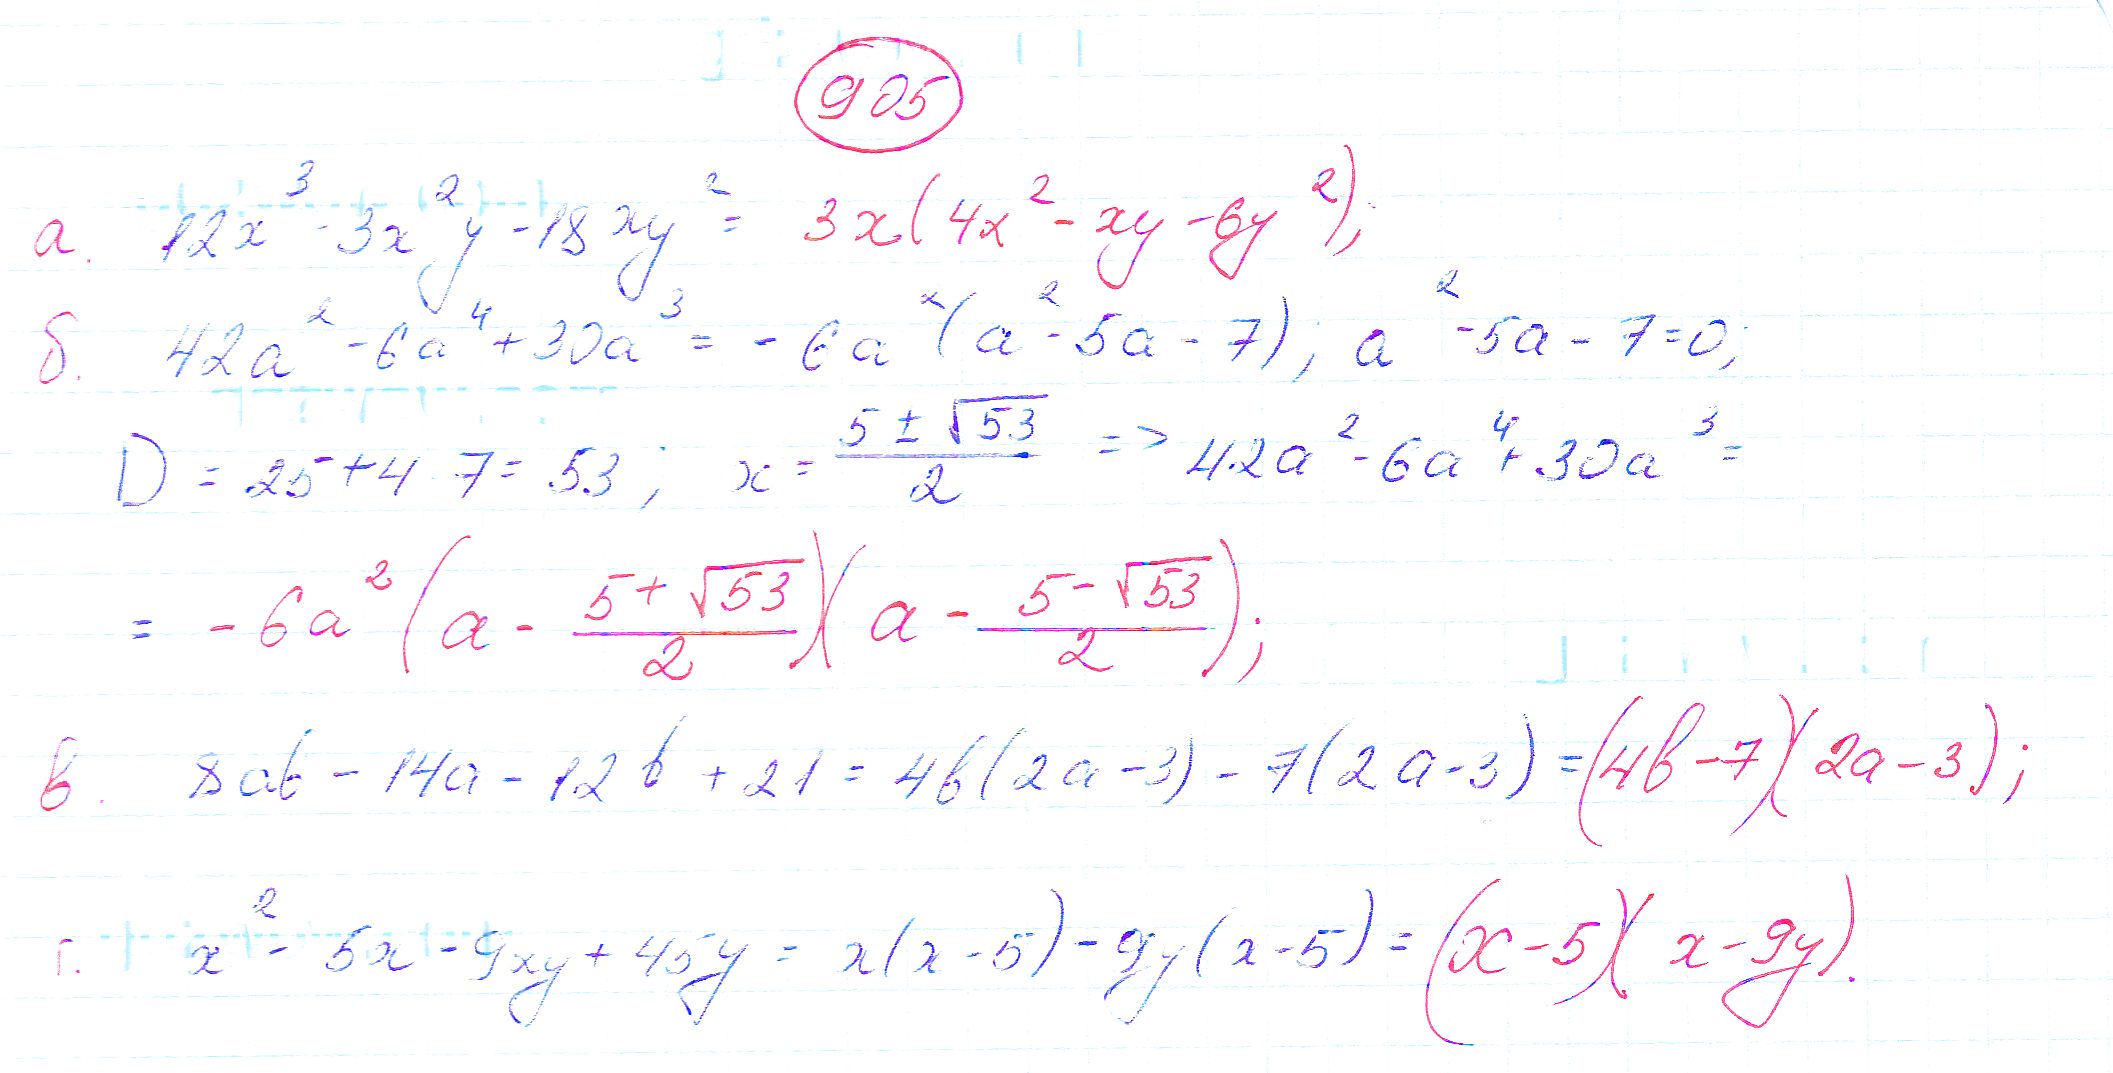 905
а. 12x³ - 3x²y - 18xy² = 3x(4x² - xy - 6y²);
б. 42a² - 6a⁴ + 30a³ = - 6a²(a² - 5a - 7); a² - 5a - 7 = 0;
D = 25 + 4 7 = 53; x = (5 ± √53)/2 => 42a² - 6a⁴ + 30a³ =
= - 6a² (a - (5 + √53)/2)(a - (5 - √53)/2);
в. 8ab - 14a - 12b + 21 = 4b(2a - 3) - 7(2a - 3) = (4b - 7)(2a - 3);
г. x² - 5x - 9xy + 45y = x(x - 5) - 9y(x - 5) = (x - 5)(x - 9y).